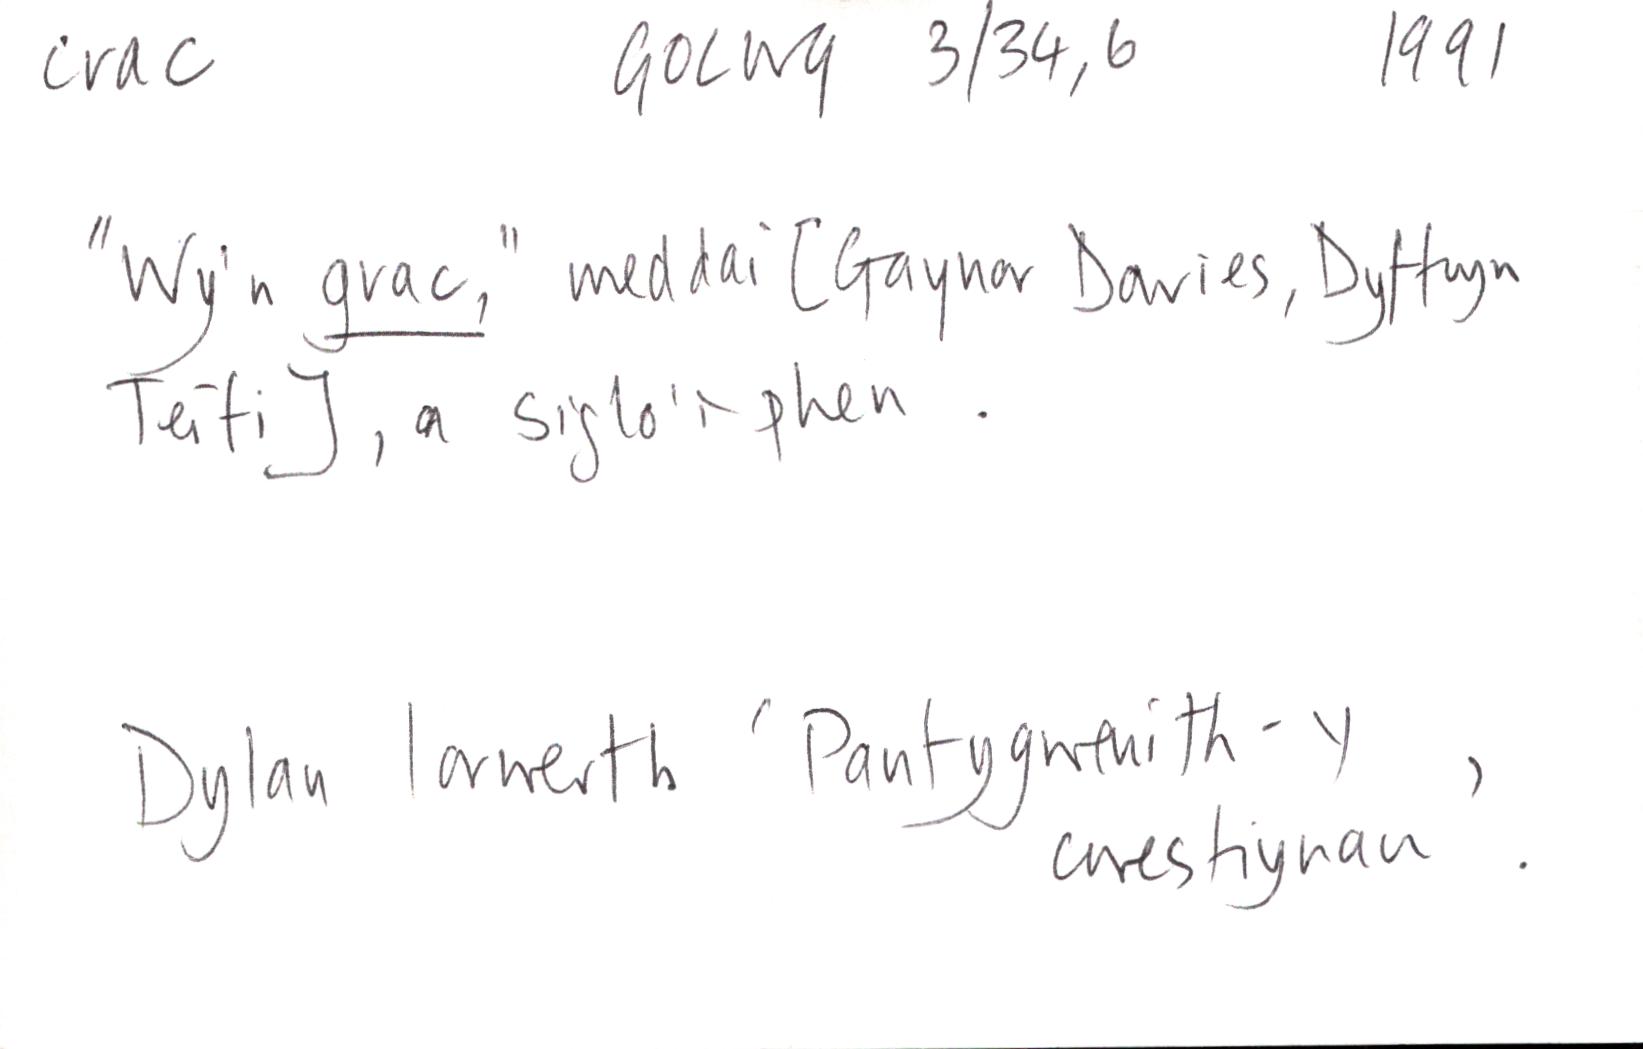 crac GOLWG 3/34, 6 1991
"Wy'n grac," meddai [Gaynor Davies, Dyffryn
Teifi], a siglo'i phen.
Dylan Iorwerth 'Pantygwenith - y
cwestiynau'.